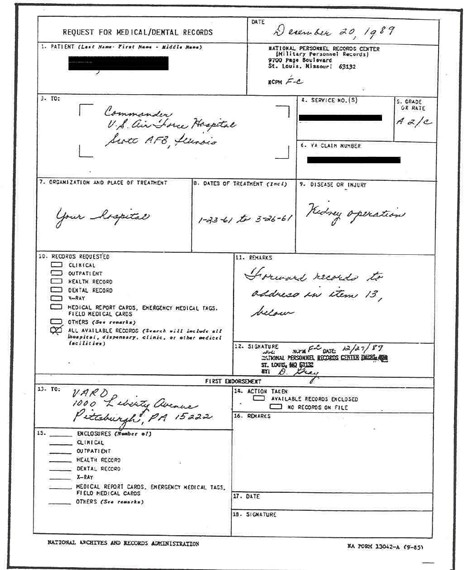 REQUEST FOR MEDICAL/DENTAL RECORDS
DATE
December 20, 1989
1. PATIENT (Last Name- First Name - Middle Name)
NATIONAL PERSONNEL RECORDS CENTER
(Military Personnel Records)
9700 Page Boulevard
St. Louis, Missouri 63132
NCPM F-C
3. TO:
Commander
U.S. Air Force Hospital
Scott AFB, Illinois
4. SERVICE NO.(S)
5. GRADE OR RATE
A 2/C
6. VA CLAIM NUMBER
7. ORGANIZATION AND PLACE OF TREATMENT
Your hospital
8. DATES OF TREATMENT (Incl)
1-23-61 to 3-26-61
9. DISEASE OR INJURY
Kidney operation
10. RECORDS REQUESTED
CLINICAL
OUTPATIENT
HEALTH RECORD
DENTAL RECORD
X-RAY
MEDICAL REPORT CARDS, EMERGENCY MEDICAL TAGS,
FIELD MEDICAL CARDS
OTHERS (See remarks)
ALL AVAILABLE RECORDS (Search will include all
inhospital, dispensary, clinic, or other medical
facilities)
11. REMARKS
Forward records to
address in item 13,
below
12. SIGNATURE
F-C DATE 12/27/89
NATIONAL PERSONNEL RECORDS CENTER
ST. LOUIS, MO 63132
BY: D. Gray
FIRST ENDORSEMENT
13. TO:
VARO
1000 Liberty Avenue
Pittsburgh, PA 15222
14. ACTION TAKEN
AVAILABLE RECORDS ENCLOSED
NO RECORDS ON FILE
15. ENCLOSURES (Number of)
CLINICAL
OUTPATIENT
HEALTH RECORD
DENTAL RECORD
X-RAY
MEDICAL REPORT CARDS, EMERGENCY MEDICAL TAGS,
FIELD MEDICAL CARDS
OTHERS (See remarks)
16. REMARKS
17. DATE
18. SIGNATURE
NATIONAL ARCHIVES AND RECORDS ADMINISTRATION
NA FORM 13042-A (9-85)